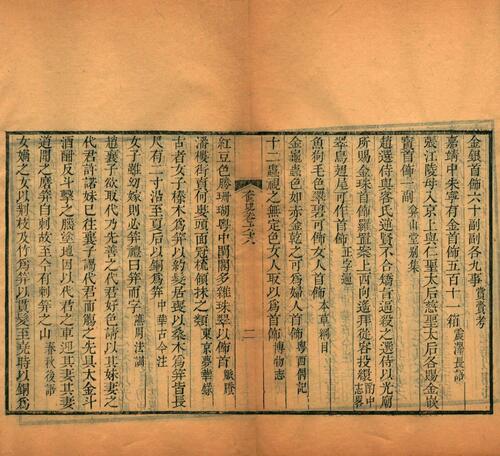 金銀首飾六十副副各九事 賞賚考
嘉靖中朱寧有金首飾五百十一箱 震澤長語
張江陵母入京上與仁聖太后慈聖太后各賜金嵌
寶首飾一副 弇山堂別集
趙選侍與客氏逆賢不合矯旨遣殺之選侍以光廟
所賜金珠首飾羅置案上西向遙拜從容投繯 酌中志畧
翠鳥翅尾可作首飾 正字通
魚狗毛色翠碧可飾女人首飾 本草綱目
金龜蟲色如赤金乾之可為婦人首飾 粵西偶記
十二蟲視之無定色女人取以為首飾 博物志
紅豆色勝珊瑚粵中閨閣多雜珠翠以飾首
潘樓街賣何婁頭面冠梳領抹之類 東京夢華錄
古者女子榛木為笄以約髮居喪以桑木為笄皆長
尺有二寸沿至夏后以銅為笄 中華古今注
女子雖幼嫁則必笄禮曰笄而字
趙襄子欲取代乃先善之代君好色請以其妹妻之
代君許諾妹已往襄子謁代君而觴之先具大金斗
酒酣反斗擊之腦塗地因以代君之車迎其妻其妻
道聞之磨笄自刺故至今有刺笄之山 春秋後語
女媧之女以荊枝及竹為笄以貫髮至堯時以銅為